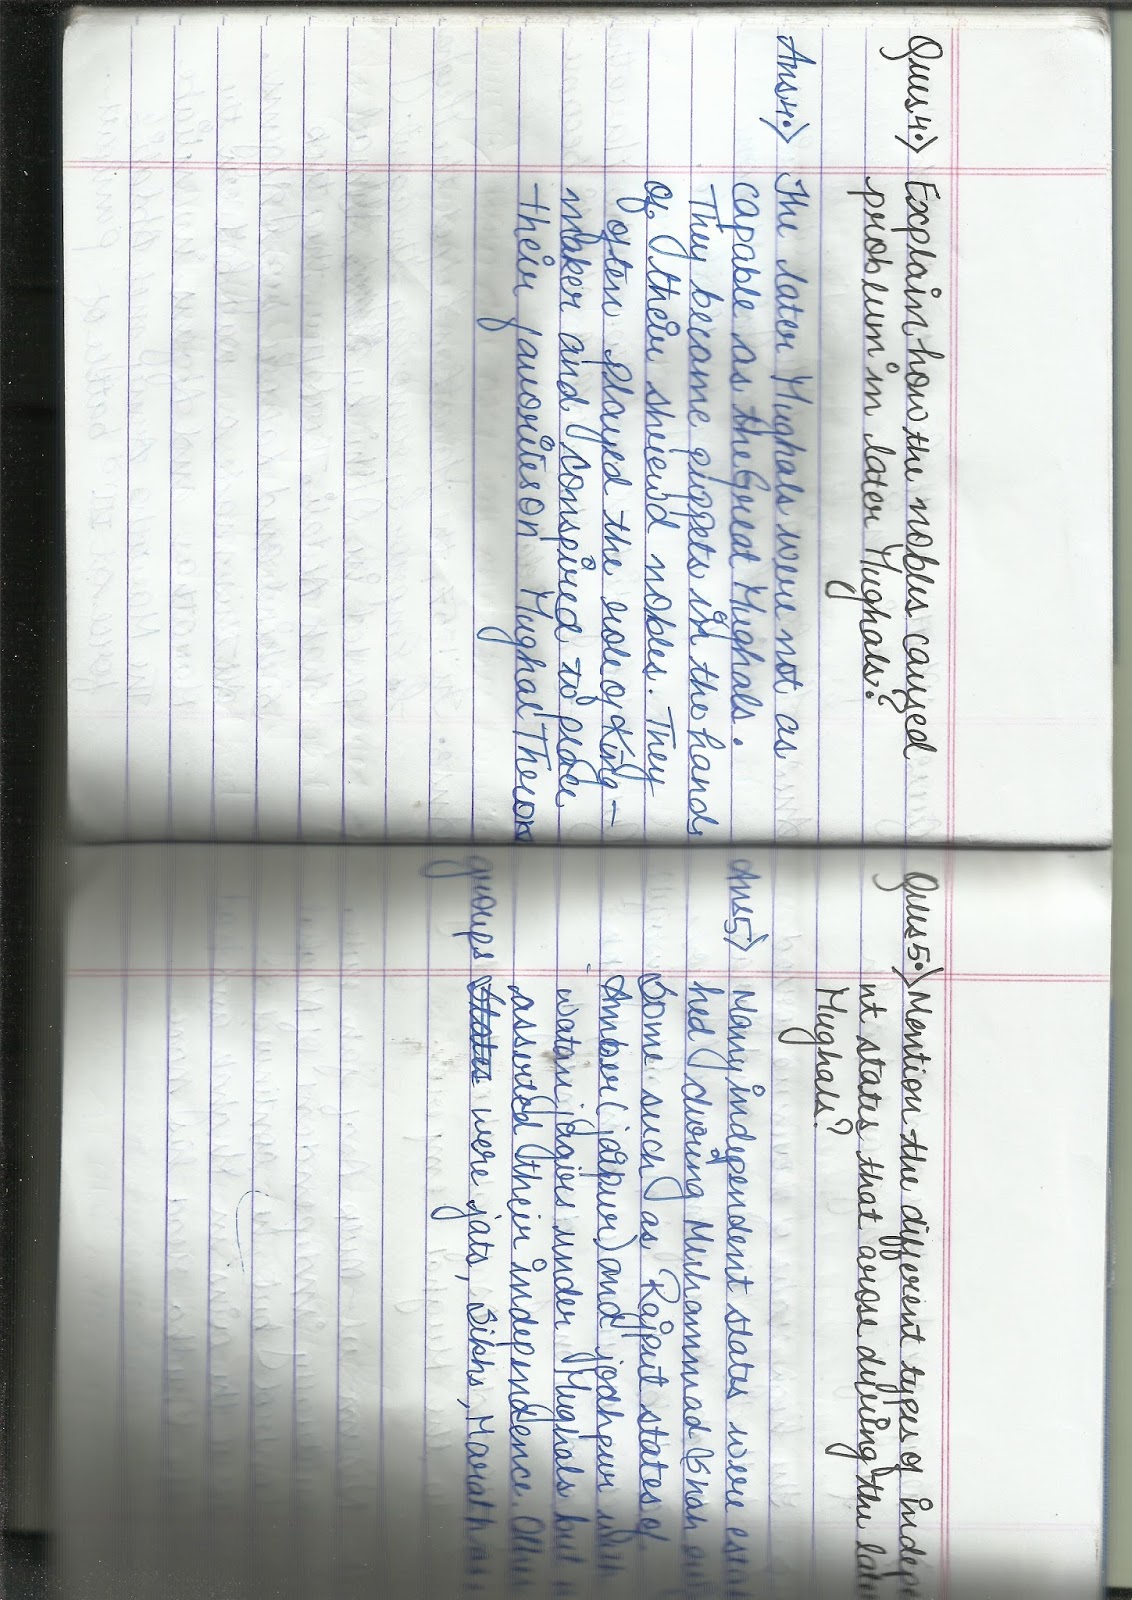 Ques4.) Explain how the nobles caused
problem in later Mughals?
Ans4.) The later Mughals were not as
capable as the Great Mughals.
They become puppets in the hands
of their shrewd nobles. They
often played the role of King-
maker and conspired to place
their favorites on Mughal Theron
Ques5.) Mention the different types of indep
nt states that arose during the late
Mughals?
Ans5.) Many independent states were
hed during Muhammad
Some such as Rajput states of
Amber (jaipur) and jodhpur
watan jagirs under Mughals but
assured their independence.
groups states were jats, Sikhs,